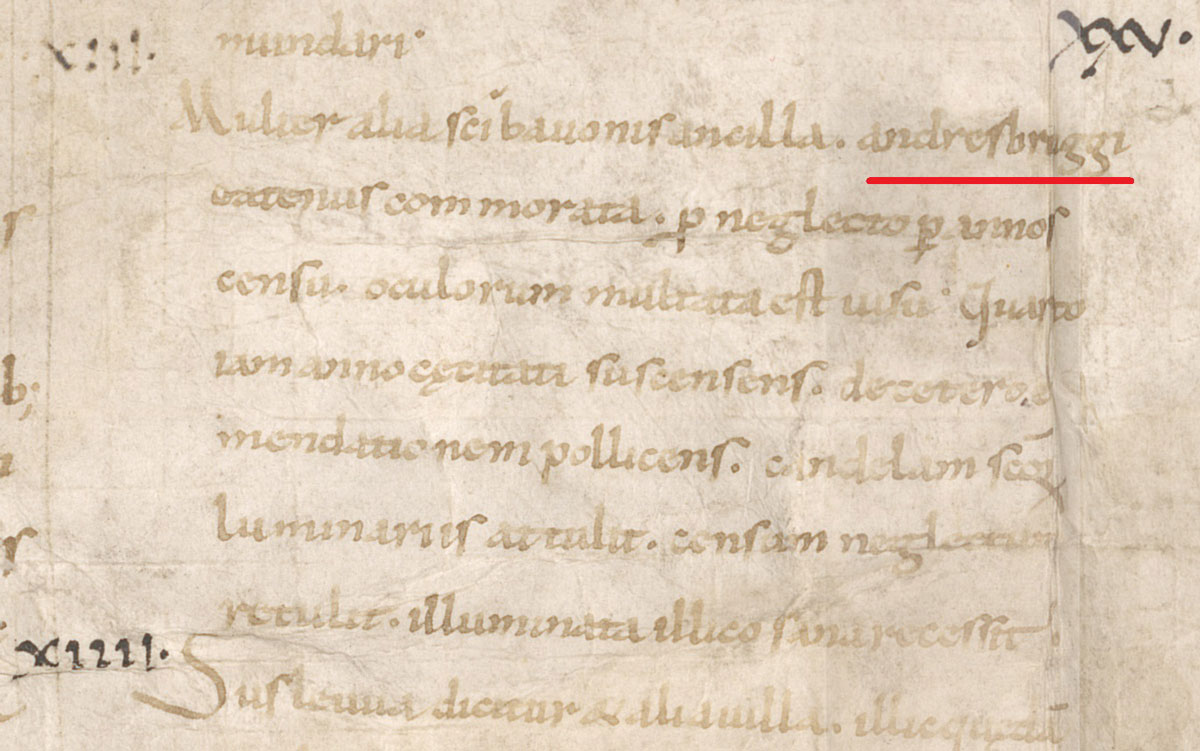 XIII. mundari. XXV.
Mulier alia sci bauonis ancilla. andresbriggi
eatenus com morata. p neglecto p annos
censu. oculorum multata est uisu. Quarto
iam anno cęcitati suscensens. de cetero e
mendationem pollicens. candelam scōꝝ
luminariis attulit. censam neglectum
retulit. illuminata illico sana recessit.
XIIII. Sus leuua dicitur & alia uilla. illic